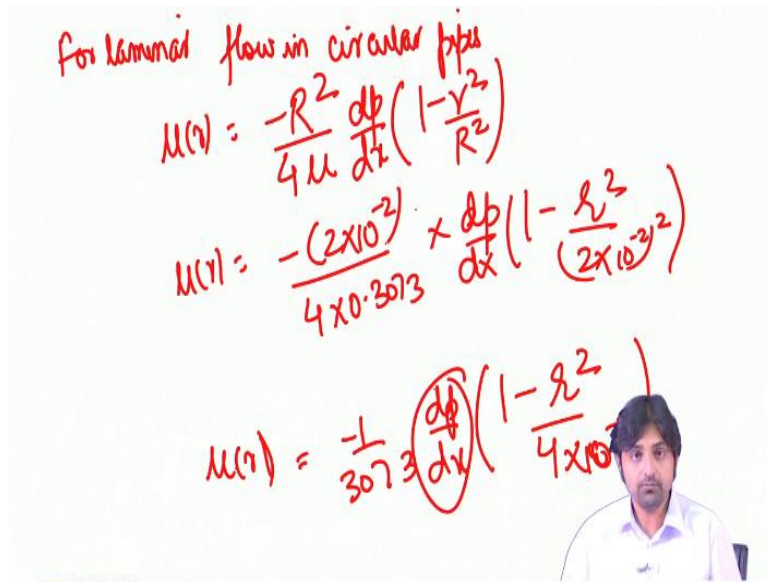 For laminar flow in circular pipes
u(r) = -R² / 4μ dp/dx (1 - r² / R²)
u(r) = -(2×10⁻²) / 4×0.3073 × dp/dx (1 - r² / (2×10⁻²)²)
u(r) = -1 / 3073 dp/dx (1 - r² / 4×10